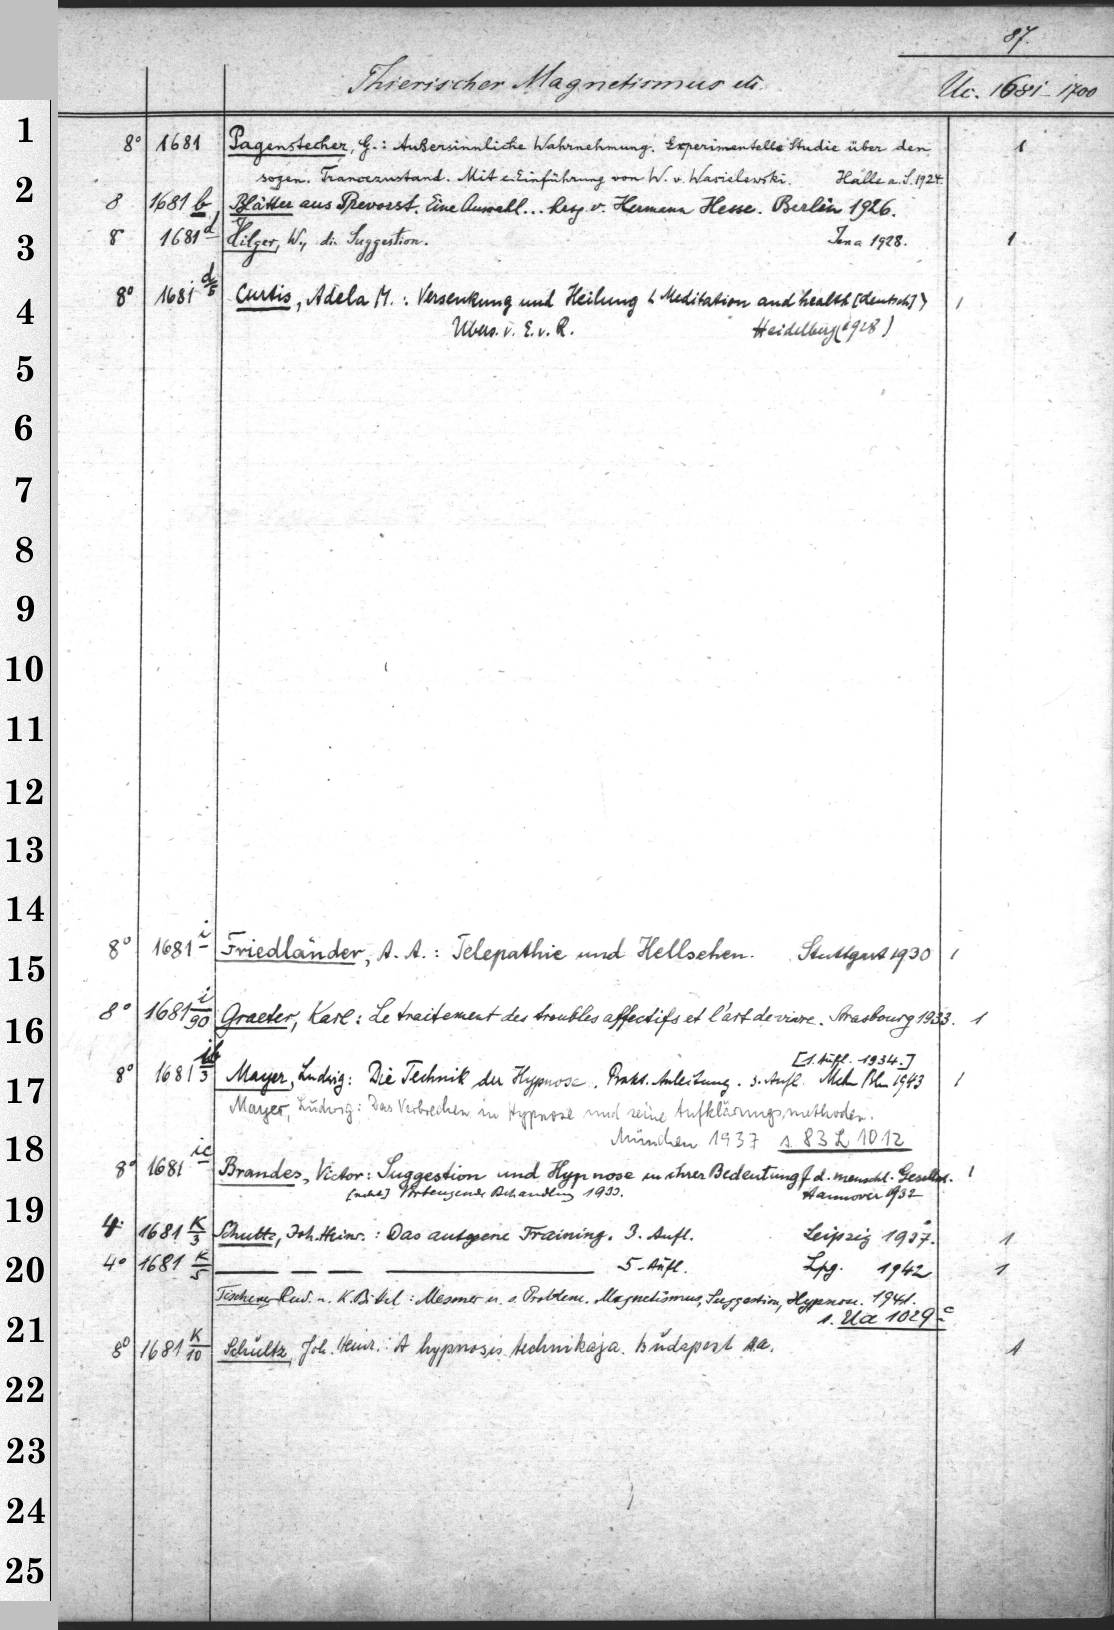 87.
Thierischer Magnetismus etc. Uc. 1681–1700
1
8° 1681 Pagenstecher, G.: Außersinnliche Wahrnehmung. Experimentelle Studie über den 1
sogen. Trancezustand. Mit e. Einführung von W. v. Wasielewski. Halle a. S. 1924.
2
8 1681 b, Blätter aus Prevorst. Eine Auswall... hrsg. v. Hermann Hesse. Berlin 1926.
3
8° 1681 d Hilger, W., die Suggestion. Jena 1928. 1
4
8° 1681 d/5 Curtis, Adela M.: Versenkung und Heilung (Meditation and health [deutsch]) 1
Übers. v. E. v. R. Heidelberg (1928)
5
6
7
8
9
10
11
12
13
14
8° 1681 i Friedländer, A. A.: Telepathie und Hellsehen. Stuttgart 1930 1
15
8° 1681 i/90 Graeter, Karl: Le traitement des troubles affectifs et l'art de vivre. Strasbourg 1933. 1
16
[1. Aufl. 1934.]
8° 1681 ib/3 Mayer, Ludwig: Die Technik der Hypnose. Prakt. Anleitung. 3. Aufl. Mchn 1943 1
17
Mayer, Ludwig: Das Verbrechen in Hypnose und seine Aufklärungsmethoden.
München 1937 s. 83 L 1012
18
8° 1681 ic Brandes, Victor: Suggestion und Hypnose in ihrer Bedeutung f. d. menschl. Gesellsch. 1
Vorbeugende Behandlung 1933. Hannover 1932
19
4° 1681 K/3 Schultz, Joh. Heinr.: Das autogene Training. 3. Aufl. Leipzig 1937. 1
20
4° 1681 K/5 — — — — 5. Aufl. Lpg. 1942 1
Tischner Rud. u. K. Bittel: Mesmer u. s. Problem. Magnetismus, Suggestion, Hypnose. 1941.
s. Ua 1029 c
21
8° 1681 K/10 Schultz, Joh. Heinr.: A hypnosis technikaja. Budapest s.a. 1
22
23
24
25